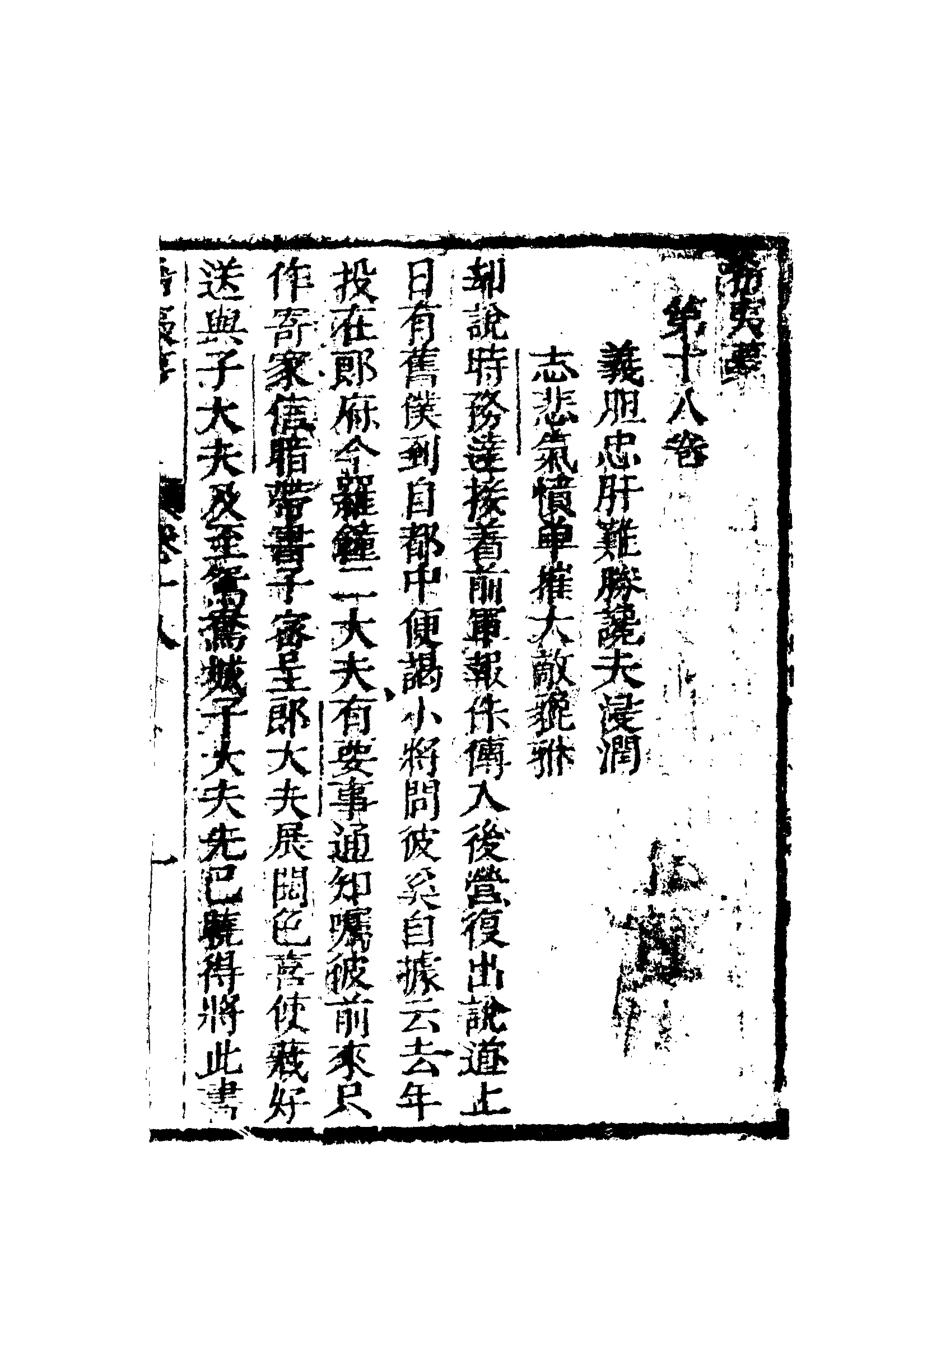 希夷夢
第十八卷
義胆忠肝難勝讒夫浸潤
志悲氣憤单摧大敵貔貅
却說時務達接着前軍報侏傳入後營復出說道止
日有舊僕到自都中便謁小將問彼奚自據云去年
投在郎府今羅鐘二大夫有要事通知囑彼前來只
作寄家信暗帶書子密呈郎大夫展閱色喜使藏好
送與子大夫及至鴛鴦城子大夫先已曉得將此書
希夷夢 卷十八 一